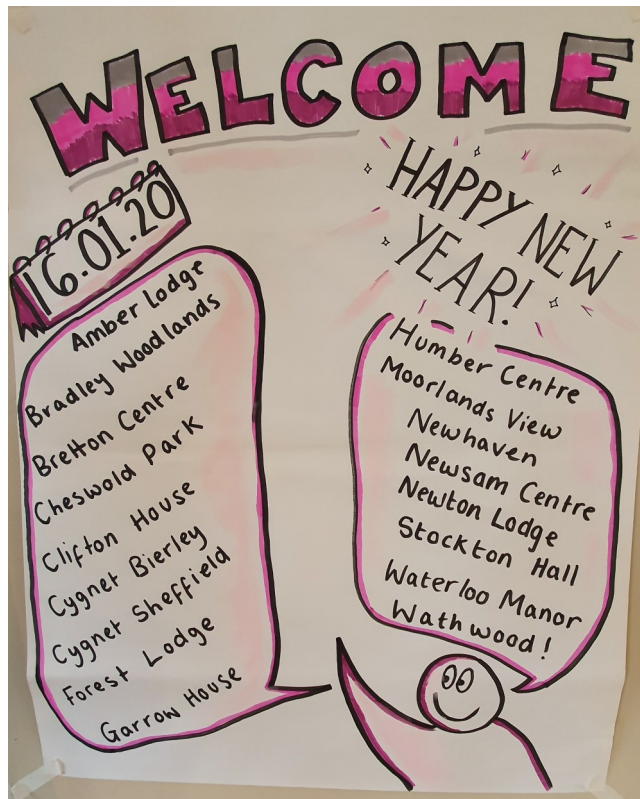 WELCOME
16.01.20
HAPPY NEW
YEAR!
Amber Lodge
Bradley Woodlands
Bretton Centre
Cheswold Park
Clifton House
Cygnet Bierley
Cygnet Sheffield
Forest Lodge
Garrow House
Humber Centre
Moorlands View
Newhaven
Newsam Centre
Newton Lodge
Stockton Hall
Waterloo Manor
Wathwood!